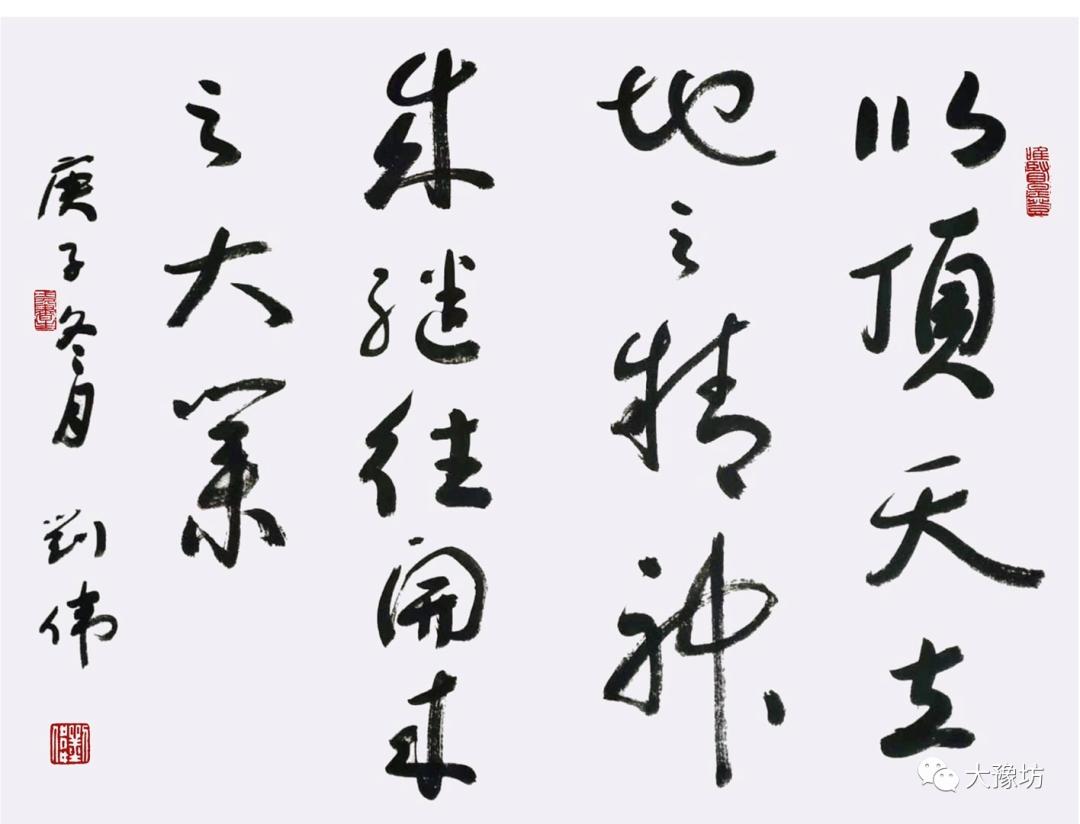 以頂天立
地之精神
成继往開来
之大業
庚子冬月
劉伟
大豫坊